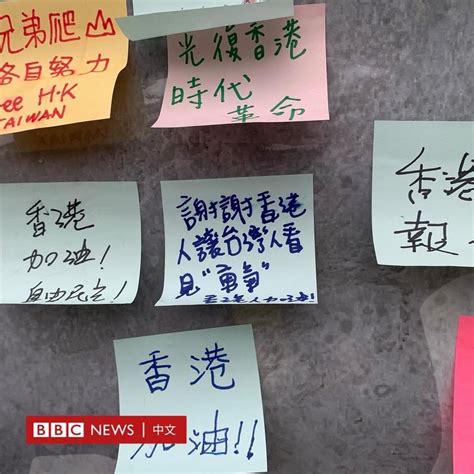 兄弟爬
各自努力
ree H.K
TAIWAN
光復香港
時代
革命
香港
加油!
自由民主!
謝謝香港
人讓台灣人看
見"勇氣"
香港人加油!
香港
報
香港
加油!!
BBC NEWS 中文